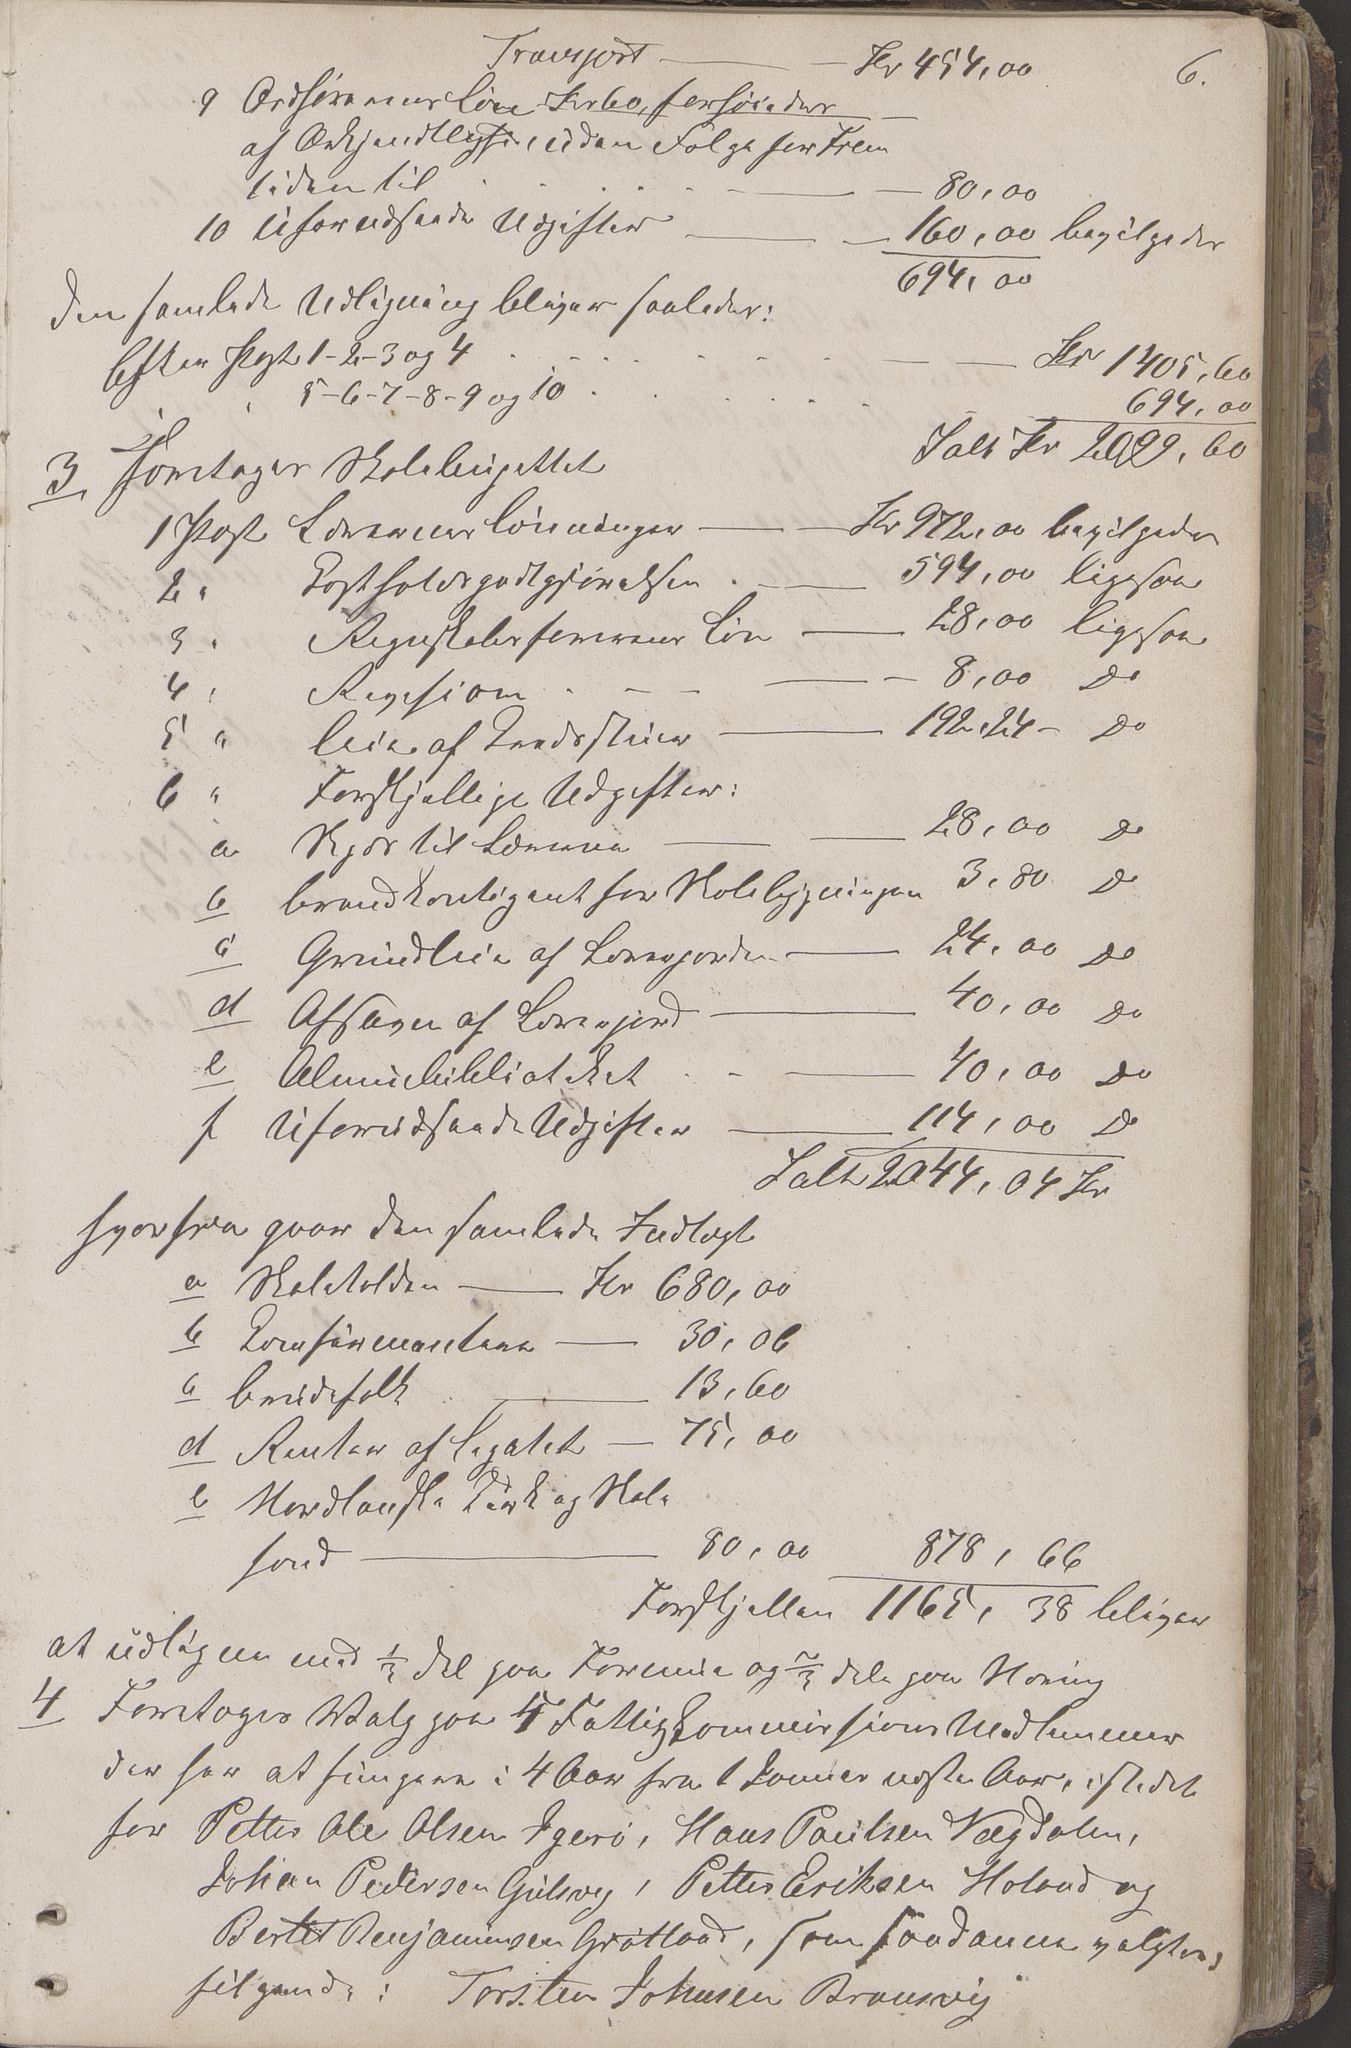 Transport — Kr 454,00
6.
9 Ordførerens Løn Kr 60, forhøiedes
af Erkjendtlighed, uden Følge for Frem
tiden til . . . . . — 80,00
10 Uforudseede Udgifter — 160,00 bevilgedes
694,00
Den samlede Udligning bliver saaledes:
Efter Post 1-2-3 og 4 . . . . . — Kr 1405,60
" " 5-6-7-8-9 og 10 . . . . . 694,00
Ialt Kr 2099,60
3 Foretoges Skolebudgettet
1 Post Lærernes Lønninger — Kr 972,00 bevilgedes
2 " Kostholdsgodtgjørelsen . — 594,00 ligesaa
3 " Regnskabsførerens Løn — 28,00 ligesaa
4 " Revision . — — 8,00 Do
5 " Leie af Kredsstuer — 192,24 - Do
6 " Forskjellige Udgifter:
a Skyds til Lærerne — 28,00 Do
b Brandkontigent for Skolebygningen 3,80 Do
c Grundleie af Lærerjorden — 24,00 Do
d Afsavn af Lærerjord — 40,00 Do
e Almuebibliotheket . . — 40,00 Do
f Uforudseede Udgifter — 114,00 Do
Ialt 2044,04 Kr
hvorfra gaar den samlede Indtægt
a Skoletolden — Kr 680,00
b Konfirmantene — 30,06
c Brudefolk . — 13,60
d Renter af Legatet — 75,00
e Nordlandske Kirk og Skole
fond — 80,00 878,66
Forskjellen 1165,38 bliver
at udligne med 1/3 del paa Formue og 2/3 dele paa Næring
4 Foretoges Valg paa 5 Fattigkommissions Medlemmer
der har at fungere i 4 Aar fra 1 Januar næste Aar, istedet
for Petter Ole Olsen Igerø, Hans Paulsen Vægdalen,
Johan Pedersen Gulsvog, Petter Eriksen Holand og
Bertet Benjaminsen Grøttland, som saadanne valgtes,
følgende: Torsten Johnsen Bransvig